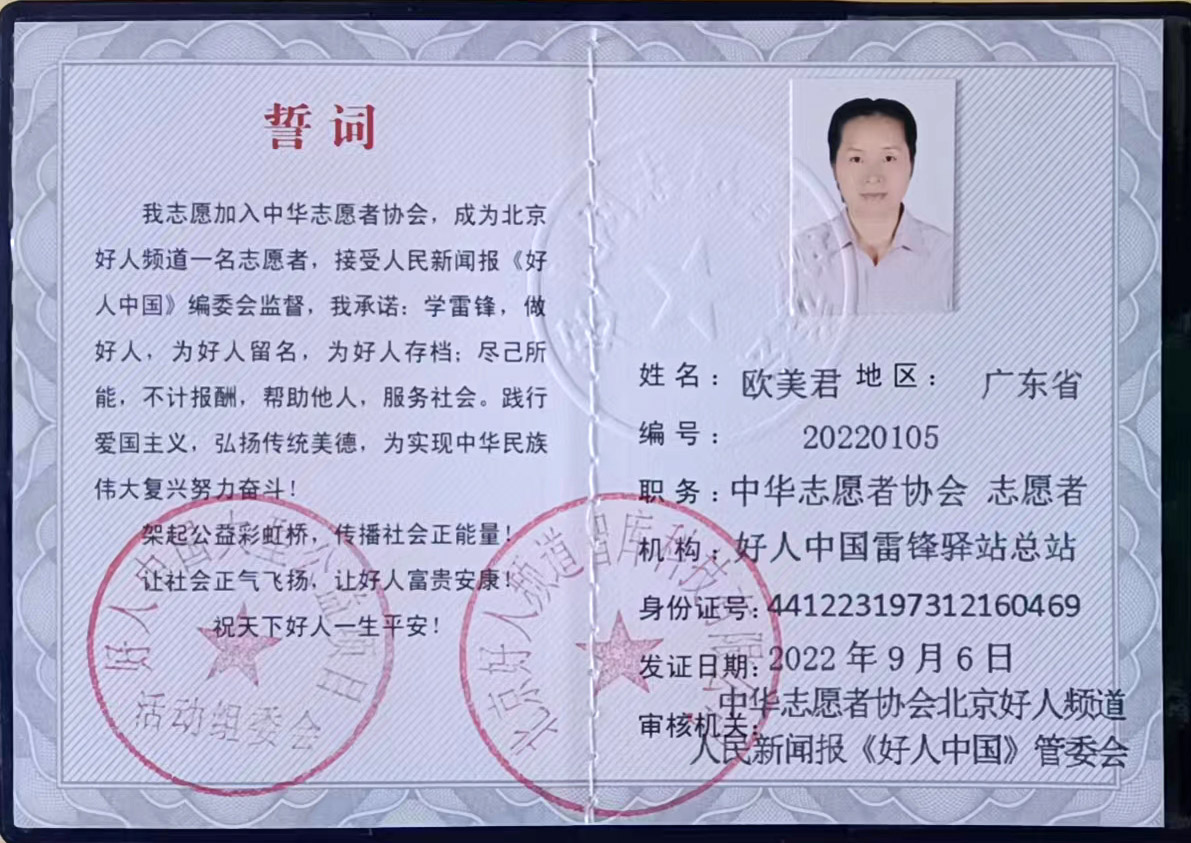 誓词
我志愿加入中华志愿者协会，成为北京
好人频道一名志愿者，接受人民新闻报《好
人中国》编委会监督，我承诺：学雷锋，做
好人，为好人留名，为好人存档；尽己所
能，不计报酬，帮助他人，服务社会。践行
爱国主义，弘扬传统美德，为实现中华民族
伟大复兴努力奋斗！
架起公益彩虹桥，传播社会正能量！
让社会正气飞扬，让好人富贵安康！
祝天下好人一生平安！
好人中国大型公益项目
活动组委会
北京好人频道智库科技有限公司
姓名：欧美君 地区：广东省
编号：20220105
职务：中华志愿者协会 志愿者
机构：好人中国雷锋驿站总站
身份证号：441223197312160469
发证日期：2022年9月6日
审核机关：中华志愿者协会北京好人频道
人民新闻报《好人中国》管委会